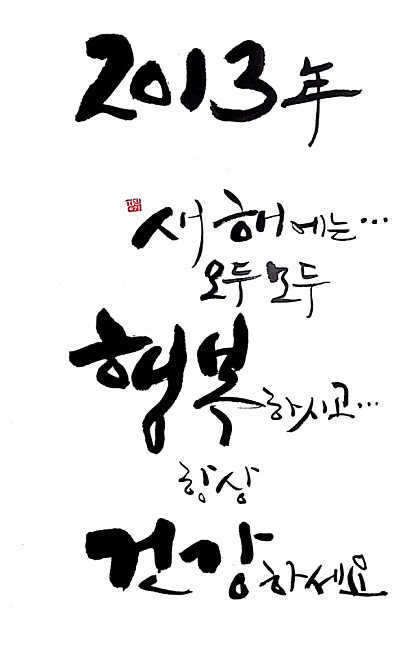 2013年
새해에는...
모두모두
행복하시고...
항상
건강하세요